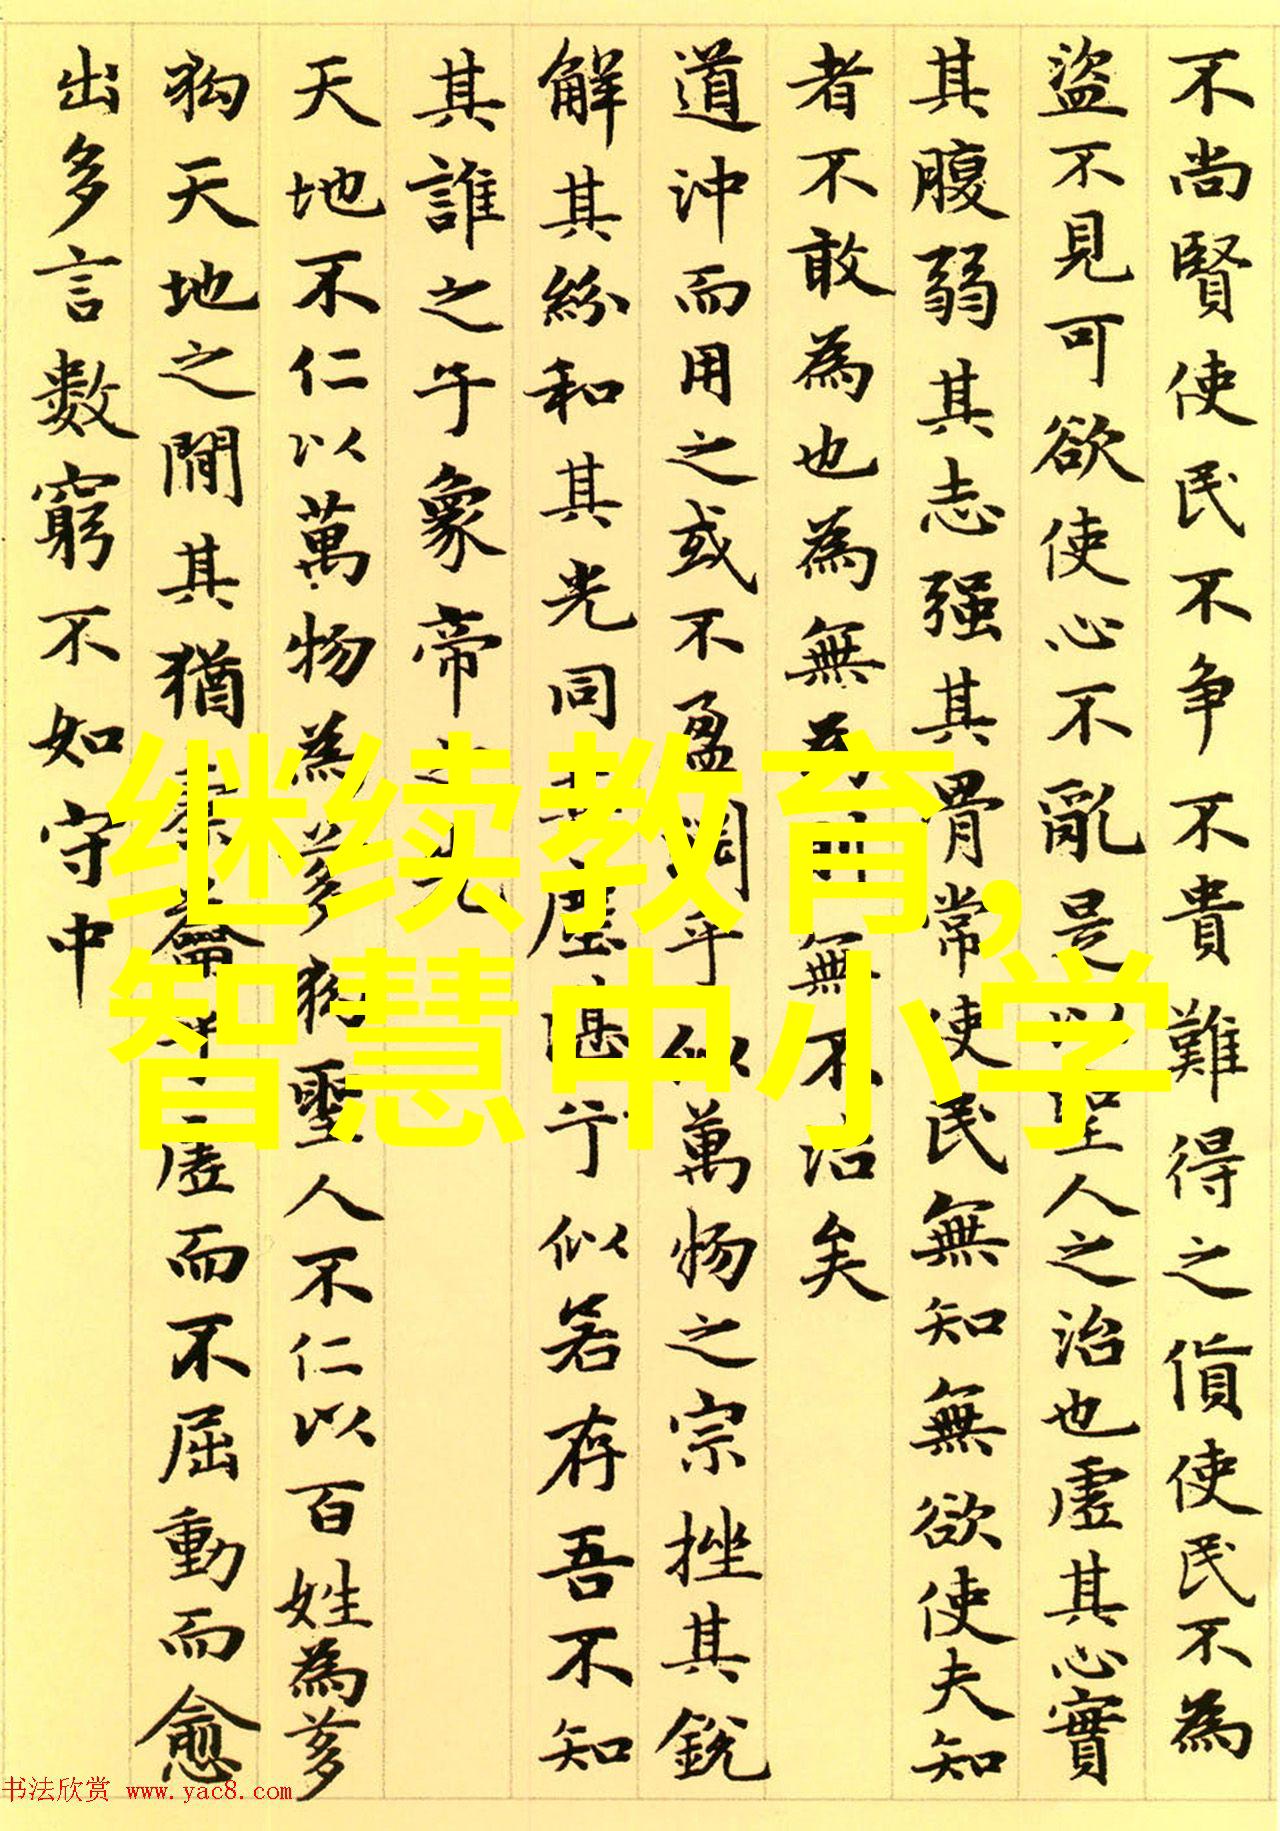 不尚賢使民不争不貴難得之貨使民不為
盜不見可欲使心不亂是以聖人之治也虛其心實
其腹弱其志强其骨常使民無知無欲使夫知
者不敢為也為無為則無不治矣
道沖而用之或不盈淵乎似萬物之宗挫其銳
解其紛和其光同其塵湛兮似若存吾不知
其誰之子象帝之先
天地不仁以萬物為芻狗聖人不仁以百姓為芻
狗天地之間其猶橐龠乎虛而不屈動而愈
出多言數窮不如守中
继续教育,
智慧中小学
书法欣赏 www.yac8.com